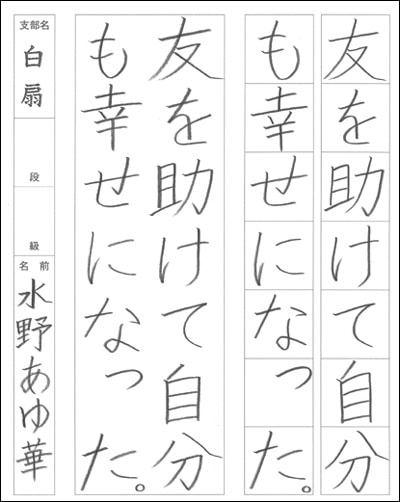 友を助けて自分
も幸せになった。
友を助けて自分
も幸せになった。
支部名
白扇
段
級
名前
水野あゆ華